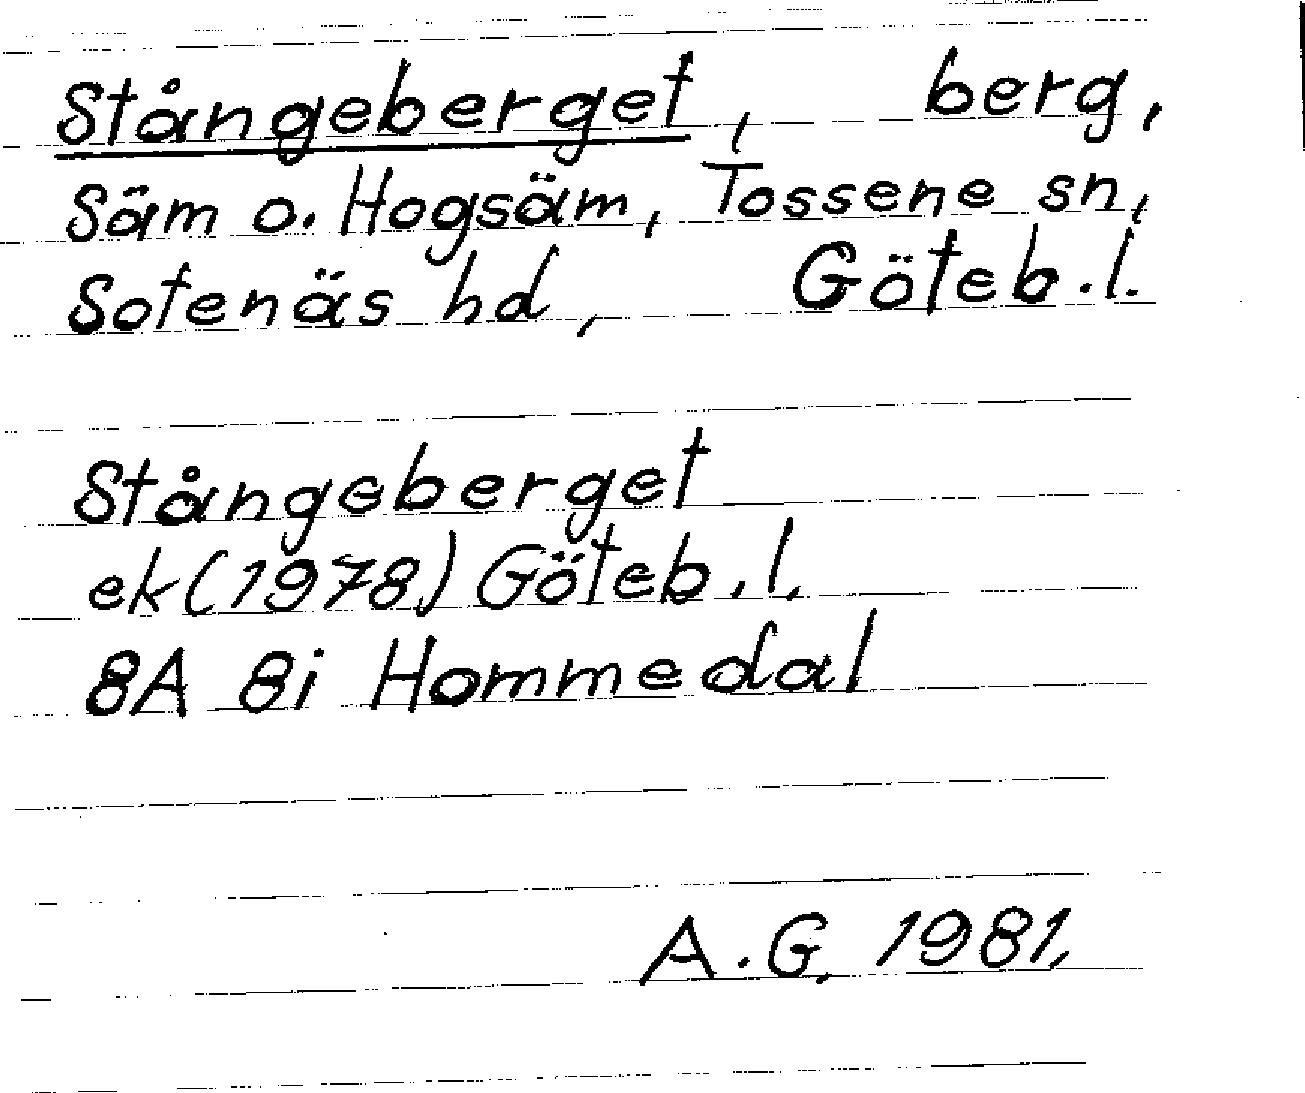 Stångeberget, berg,
Säm o. Hogsäm, Tossene sn,
Sotenäs hd, Göteb.l.
Stångeberget
ek (1978) Göteb.l.
8A 8i Hommedal
A.G. 1981.